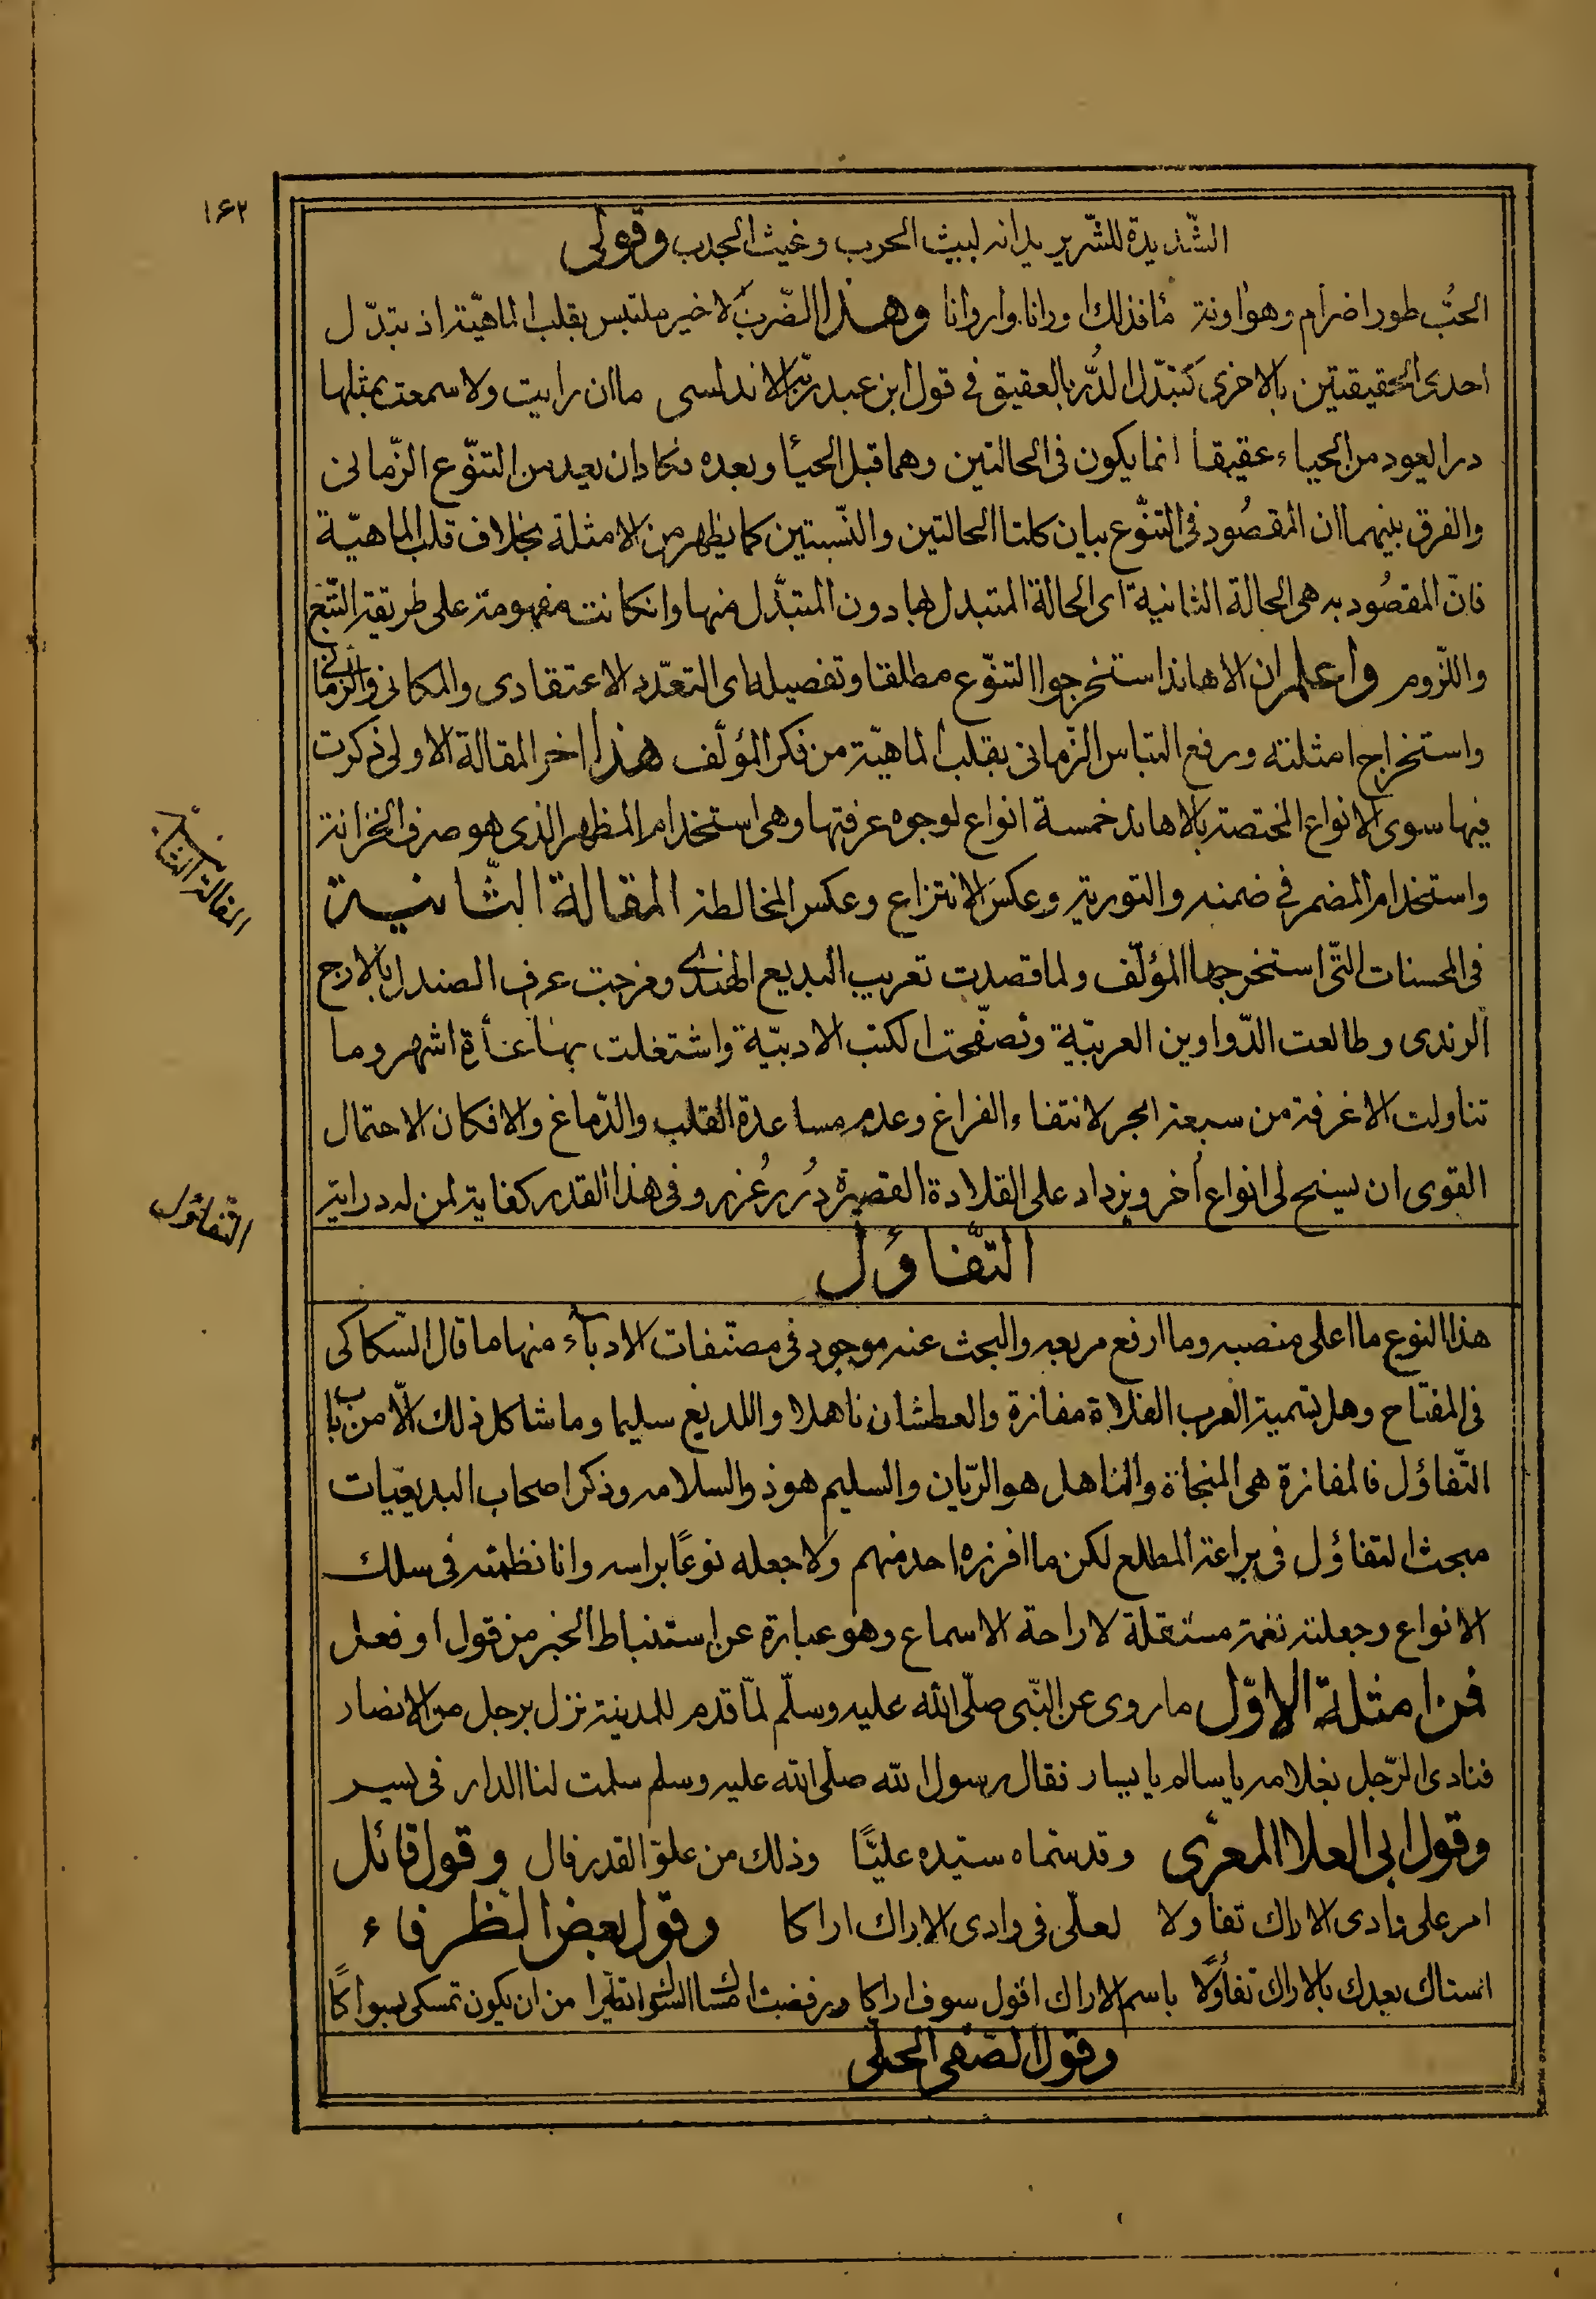 ١٦٢
الشّديدة للشّر يريد انه لبيث الحرب وغيث الجدب وقولى
الحُبّ طورا ضرام وهوآونة مافذلك اورانا واروانا وهذا الضّرب الاخير ملتبس بقلب الماهيّة اذ تبدّل
احدى الحقيقتين بالاخرى كتبدّل الدُّر بالعقيق فى قول ابن عبدربّه الاندلسى ما ان رايت ولا سمعت بمثلها
درا يعود من الحياء عقيقا انما يكون فى الحالتين وهما قبل الحيا وبعده فكاد ان يعد من التنوّع الزّمانى
والفرق بينهما ان المقصُود فى التنوّع بيان كلتا الحالتين والنّسبتين كما يظهر من الامثلة بخلاف قلب الماهيّة
فانّ المقصُود به هى الحالة الثانية اى الحالة المتبدل لها دون المتبدّل منها وانكانت مفهومة على طريقة التّبع
واللّزوم واعلم ان الاهاند استخرجوا التنوّع مطلقا وتفصيله اى التعدّد الاعتقادى والمكانى والزّمانى
واستخراج امثلته ورفع التباس الزّمانى بقلب الماهيّة من فكر المؤلّف هذا اخر المقالة الاولى ذكرت
فيها سوى الانواع المختصة بالاهاند خمسة انواع لوجوه عرفتها وهى استخدام المظهر الذى هو صرف الخزانة
واستخدام المضمر فى ضمنه والتورية وعكس الانتزاع وعكس المخالطة المقالة الثّانية
المقالة الثّانية
فى المحسنات التّى استخرجها المؤلّف ولما قصدت تعريب البديع الهندى ومزجت عرف الصندل بالارج
الرندى وطالعت الدّواوين العربيّة وتصفّحت الكتب الادبيّة واشتغلت بها عدّة اشهر وما
تناولت الا غرفة من سبعة ابحر لانتفاء الفراغ وعدم مساعدة القلب والدّماغ والا فكان الاحتمال
القوى ان يسنح لى انواع اُخر ويزداد على القلادة القصيرة دُرر غُرر وفى هذا القدر كفاية لمن له دراية
التّفاؤل
التّفاؤل
هذا النوع ما اعلى منصبه وما ارفع مربعه والبحث عنه موجود فى مصنّفات الادباء منها ما قال السّكاكى
فى المفتاح وهل تسمية العرب الفلاة مفازة والعطشان ناهلا واللديغ سليما وما شاكل ذلك الّا من باب
التّفاؤل فالمفازة هى المنجاة والناهل هو الريّان والسليم هو ذو السلامه وذكر اصحاب البديعيّات
مبحث التفاؤل فى براعة المطلع لكن ما افرزه احد منهم ولا جعله نوعًا براسه وانا نظمته فى سلك
الانواع وجعلته نغمة مستقلة لاراحة الاسماع وهو عبارة عن استنباط الخير من قول او فعل
فمن امثلة الاوّل ما روى عن النّبى صلّى الله عليه وسلّم لمّا قدم للمدينة نزل برجل من الانصار
فنادى الرّجل بغلامه يا سالم يا يسار فقال رسول الله صلى الله عليه وسلم سلمت لنا الدار فى يسر
وقول ابى العلا المعرّى وقد سمّاه سيّده عليّا وذلك من علوّ القدر فال وقول قائل
امر على وادى الاراك تفاولا لعلّى فى وادى الاراك اراكا وقول بعض الظرفاء
استاك بعدك بالاراك تفاؤلًا باسم الاراك اقول سوف اراكا ورفضت امساك السّواك تطيّرا من ان يكون تمسكى بسواكا
وقول الصّفى الحلّى